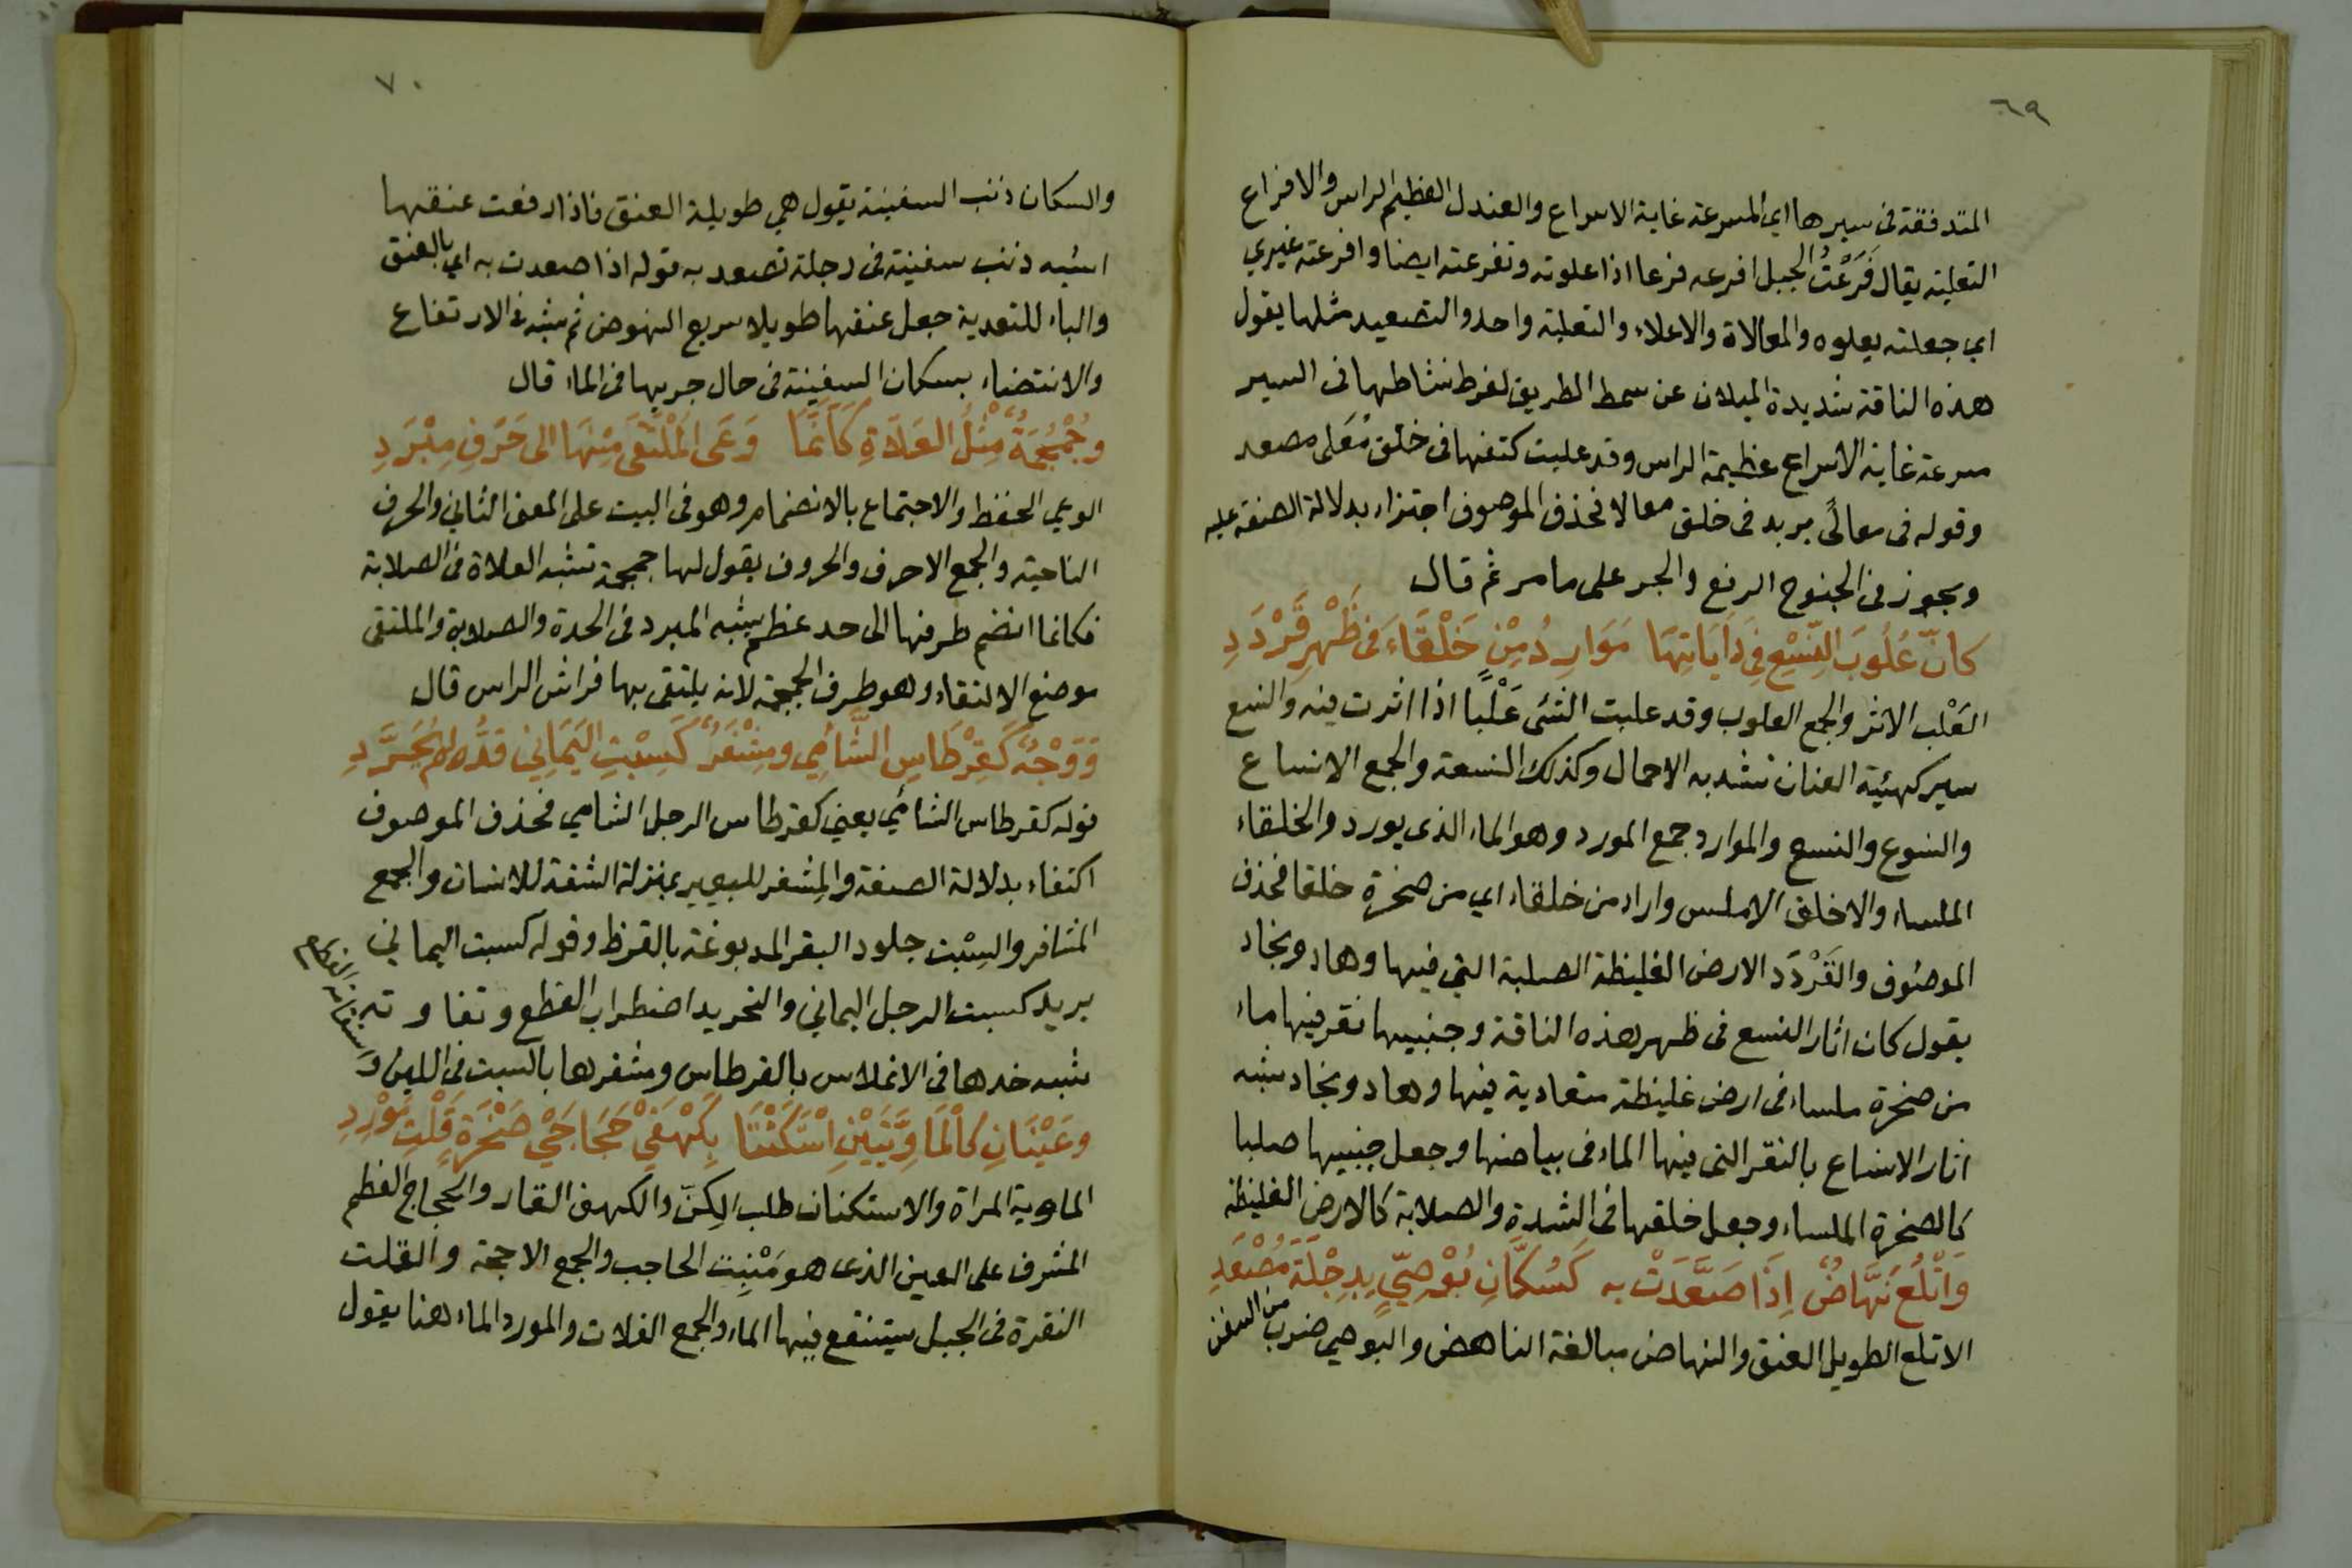 ٦٩
المتدفقة فى سيرها اى المسرعة غاية الاسراع والعندل العظيم الراس والافراع
التعلية يقال فَرَعْتُ الجبل افرعه فرعا اذا علوته وتفرعته ايضا وافرعته غيري
اي جعلته يعلوه والمعالاة والاعلاء والتعلية واحد والتصعيد مثلها يقول
هذه الناقة شديدة الميلان عن سمط الطريق لفرط نشاطها فى السير
مسرعة غاية الاسراع عظيمة الراس وقد عليت كتفها فى خلق مُعَلى مصعد
وقوله فى معالًى يريد فى خلق معالا فحذف الموصوف اجتزاء بدلالة الصفة عليه
ويجوز فى الجنوح الرفع والجر على ما مر ثم قال
كانّ عُلُوبَ النِّسْعِ فِي دَايَاتِهَا مَوَارِدُ مِنْ خَلْقَاءَ فى ظَهْرِ قَرْدَدِ
العَلْب الاثر والجمع العلوب وقد علبت الشئ عَلْبًا اذا اثرت فيه والنسع
سير كهيئة العنان تشد به الاحمال وكذلك النسعة والجمع الانساع
والنسوع والنسع والموارد جمع المورد وهو الماء الذى يورد والخلقاء
الملساء والاخلق الاملس واراد من خلقاء اي من صخرة خلقا فحذف
الموصوف والقَرْدَد الارض الغليظة الصلبة التي فيها وهاد ونجاد
يقول كان اثار النسع فى ظهر هذه الناقة وجنبيها نقر فيها ماء
من صخرة ملساء فى ارض غليظة متعادية فيها وهاد ونجاد شبه
اثار الانساع بالنقر التى فيها الماء فى بياضها وجعل جنبيها صلبا
كالصخرة الملساء وجعل خلقها فى الشدة والصلابة كالارض الغليظة
وَاَتْلَعُ نَهَّاضٌ اِذَا صَعَّدَتْ به كَسُكَّانِ بُوْصِيٍّ بِدِجْلَةَ مُصْعَدِ
الاتلع الطويل العنق والنهاض مبالغة الناهض والبوصي ضرب من السفن
٧٠
والسكان ذنب السفينة يقول هي طويلة العنق فاذا رفعت عنقها
اشبه ذنب سفينة فى دجلة تصعد به قوله اذا صعدت به اى بالعنق
والباء للتعدية جعل عنقها طويلا سريع النهوض ثم شبه فى الارتفاع
والانتضاء بسكان السفينة فى حال جريها فى الماء قال
وجُمْجُمَةٌ مِثْلُ العَلَاةِ كَاَنَّمَا وَعَى المُلْتَقَى مِنْهَا الى حَرْفِ مِبْرَدِ
الوعي الحفظ والاجتماع بالانضمام وهو فى البيت على المعنى الثاني والحرف
الناحية والجمع الاحرف والحروف يقول لها جمجمة تشبه العلاة فى الصلابة
فكانما انضم طرفها الى حد عظم يشبه المبرد فى الحدة والصلابة والملتقى
موضع الالتقاء وهو طرف الجمجمة لانه يلتقى بها فراش الراس قال
وَوَجْهٌ كَقِرْطَاسِ الشَّآمِي ومِشْفَرٌ كَسِبْتِ اليَمَانِي قدُّه لم يُجَرَّدِ
قوله كقرطاس الشآمي يعنى كقرطاس الرجل الشامي فحذف الموصوف
اكتفاء بدلالة الصفة والمِشفر للبعير بمنزلة الشفة للانسان والجمع
المشافر والسِبْت جلود البقر المدبوغة بالقرظ وقوله كسبت اليماني
يريد كسبت الرجل اليماني والتحريد اضطراب القطع وتفاوته
شبه خدها فى الانملاس بالقرطاس ومشفرها بالسبت فى اللين و
وعَيْنَانِ كالْمَاوِيَّتَيْنِ اسْتَكَنَّتَا بِكَهْفَيْ حَجَاجَيْ صَخْرَةٍ قَلْتِ مَوْرِدِ
الماوية المراة والاستكنان طلب الكِنّ والكهف الغار والحجاج العظم
المشرف على العين الذى هو مَنْبِت الحاجب والجمع الاحجة والقلت
النقرة فى الجبل يستنقع فيها الماء والجمع القلات والمورد الماء هنا يقول